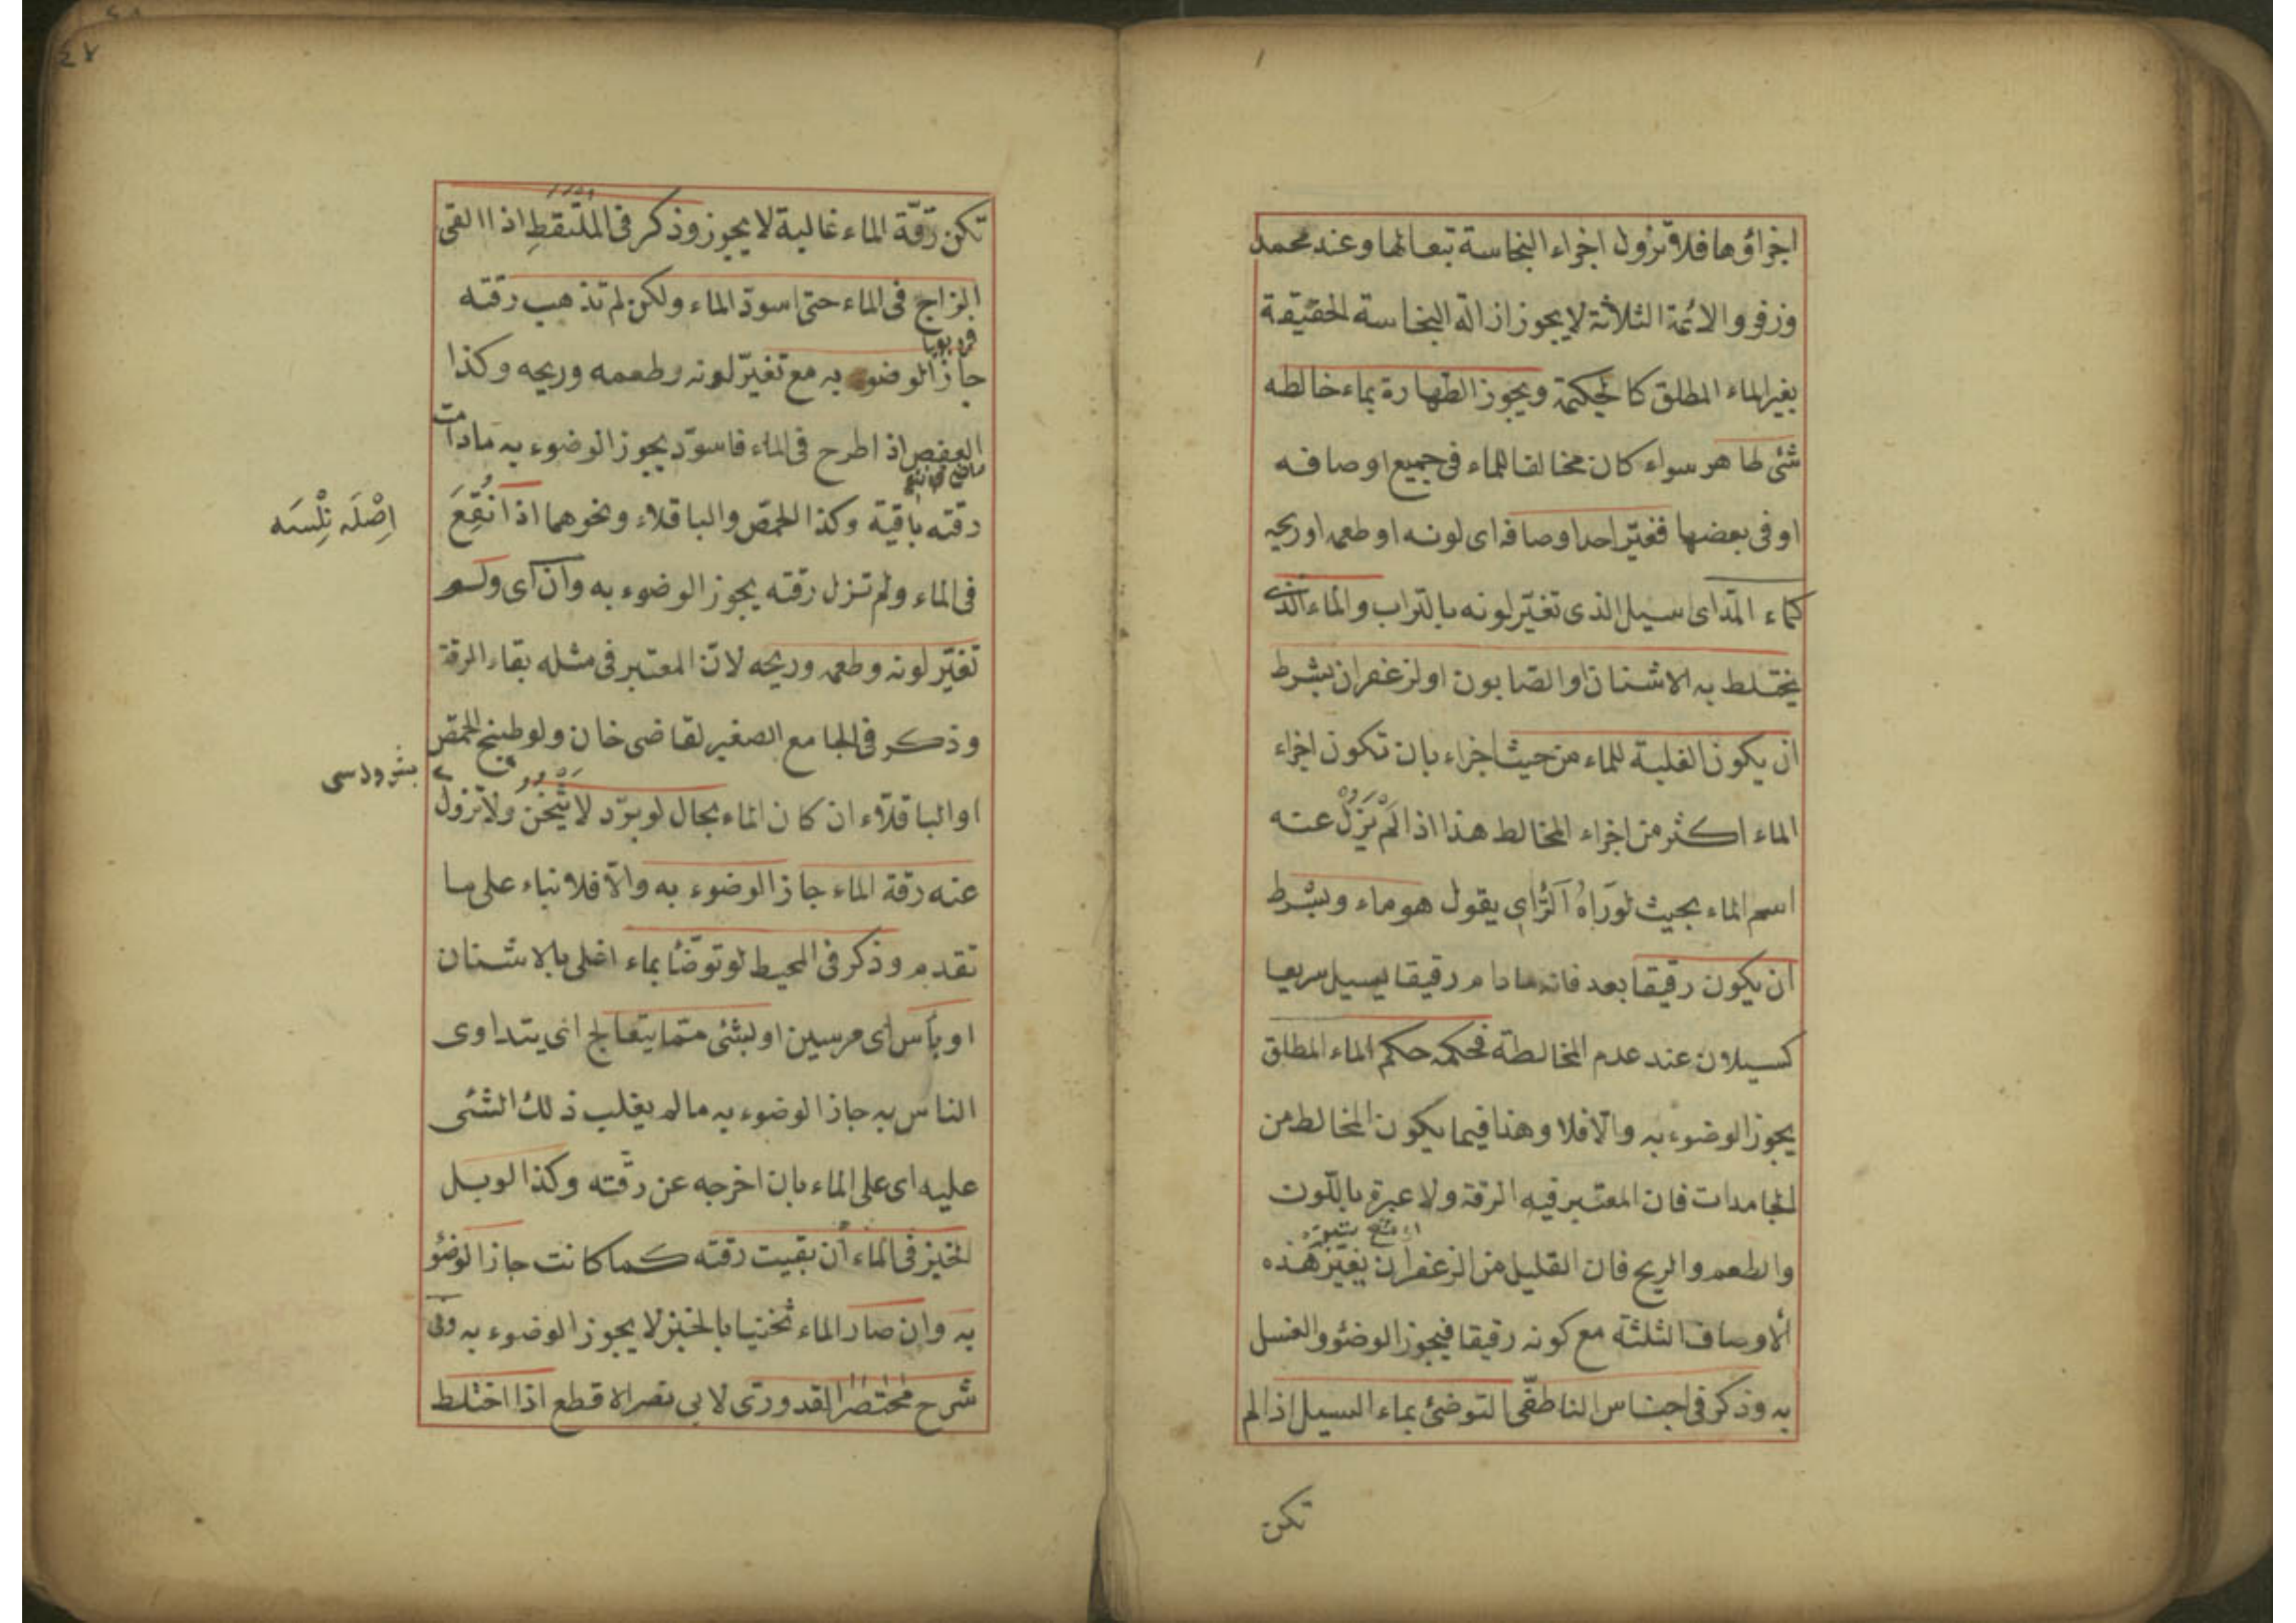 اجزاؤها فلا تزول اجزاء النجاسة تبعا لها وعند محمد
وزفر والائمة الثلاثة لا يجوز ازالة النجاسة الحقيقة
بغير الماء المطلق كالحكمية ويجوز الطهارة بماء خالطه
شئ طاهر سواء كان مخالفا للماء فى جميع اوصافه
او فى بعضها فغيّر احد اوصافه اى لونه او طعمه او ريحه
كماء المدّ اى سيل الذى تغيّر لونه بالتراب والماء الذى
يختلط به الاشنان او الصابون او الزعفران بشرط
ان يكون الغلبة للماء من حيث اجزاء بان تكون اجزاء
الماء اكثر من اجزاء المخالط هذا اذا لَمْ يَزُلْ عنه
اسم الماء بحيث لَوْ رَاهُ الرَّاىِ يقول هو ماء وبشرط
ان يكون رقيقا بعد فانه مادام رقيقا يسيل سريعا
كسيلان عند عدم المخالطة فحكمه حكم الماء المطلق
يجوز الوضوء به والّا فلا وهذا فيما يكون المخالط من
الجامدات فان المعتبر فيه الرقة ولا عبرة باللّون
والطعم والريح فان القليل من الزعفران يغيّر هذه
الاوصاف الثلثة مع كونه رقيقا فيجوز الوضئو والغسل
به وذكر فى اجناس الناطفّى التوضئ بماء السيل اذا لم
تكن
٤٧
تكن رقّة الماء غالبة لا يجوز وذكر فى الملتقطِ اذا القى
الزاج فى الماء حتى اسودّ الماء ولكن لم تذهب رقته
جاز الوضوء به مع تغيّر لونه وطعمه وريحه وكذا
العفص اذا طرح فى الماء فاسودّ يجوز الوضوء به مادامت
رقته باقية وكذا الحمّص والباقلاء ونحوهما اذا اُنْقِعَ
اِصْلَه نِلْسَه
فى الماء ولم تزل رقته يجوز الوضوء به وان اى ولو
تغيّر لونه وطعمه وريحه لانّ المعتبر فى مثله بقاء الرقة
وذكر فى الجامع الصغير لقاضى خان ولو طبخ الحمّص
او الباقلّاء ان كان الماء بحال لو برّد لا يَثْخُنُ ولا تزول
عنه رقة الماء جاز الوضوء به والّا فلا بناء على ما
تقدم وذكر فى المحيط لو توضّأ بماء اغلى بالاشنان
او بآس اى مرسين او بشئى ممّا يتعالج اى يتداوى
الناس به جاز الوضوء به مالم يغلب ذلك الشئى
عليه اى على الماء بان اخرجه عن رقّته وكذا لو بل
الخبز فى الماء أن بقيت رقته كما كانت جاز الوضؤ
به وان صار الماء ثخنيا بالخبز لا يجوز الوضوء به وفى
شرح مختصر القدورىّ لابى نصر الاقطع اذا اختلط